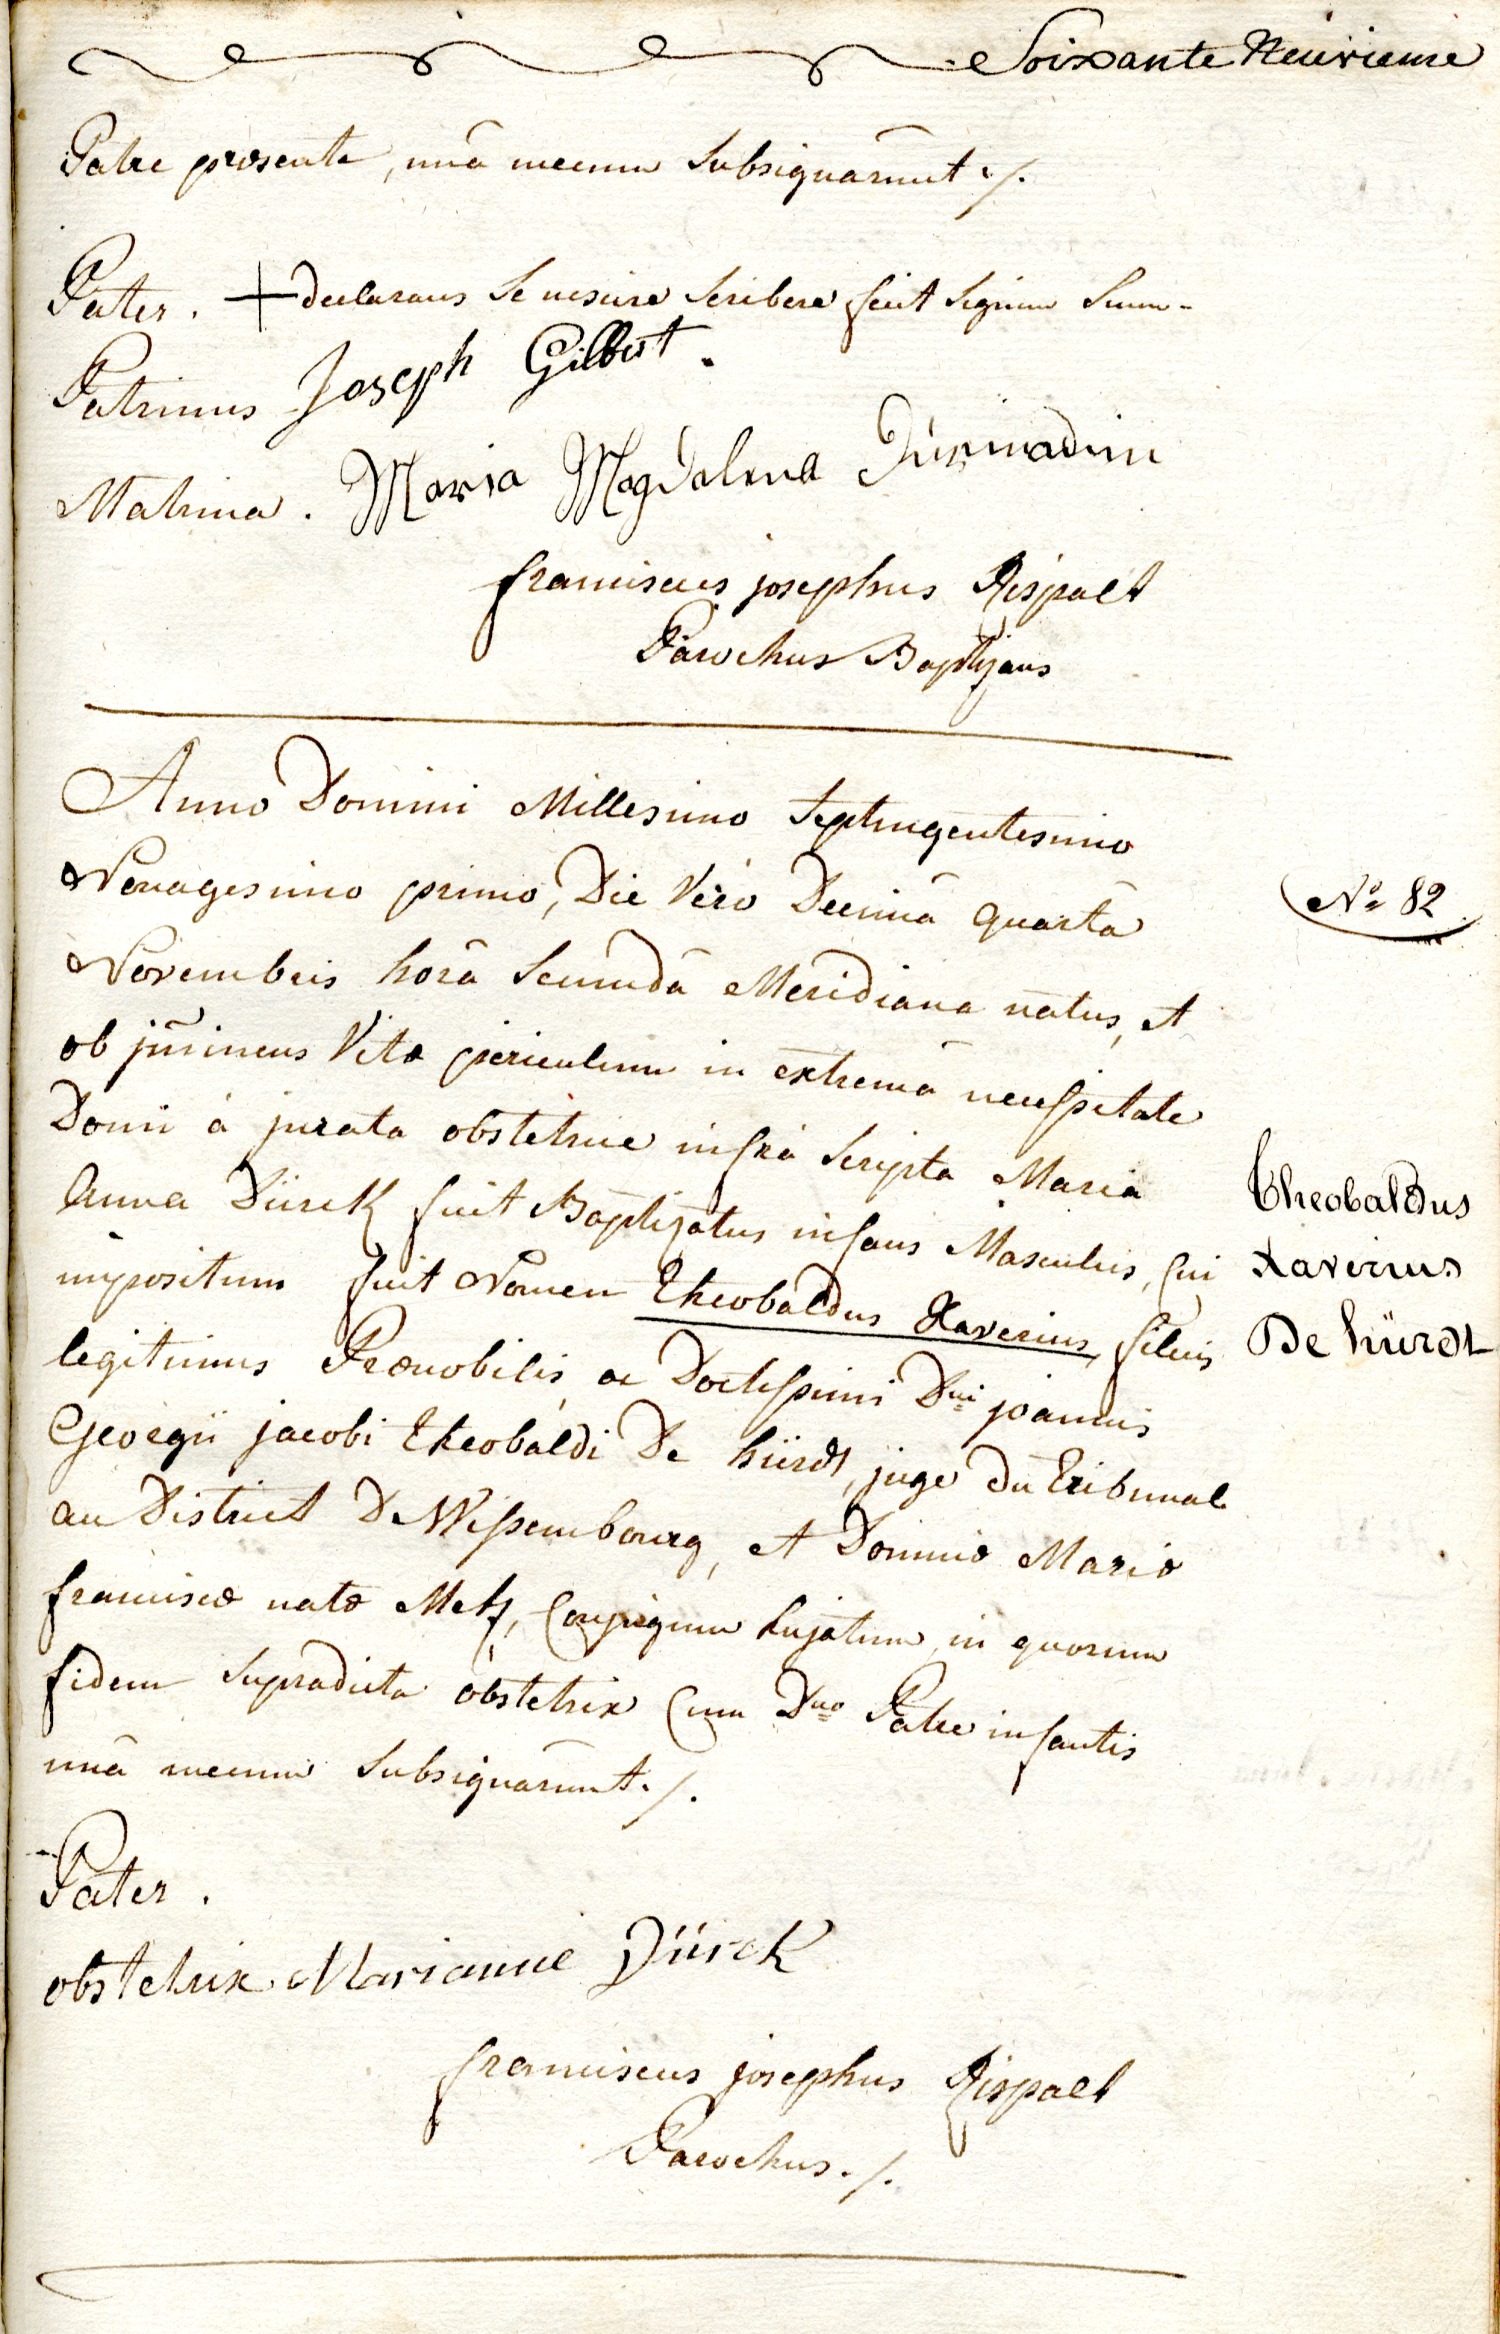 Soixante Neuvieme
Patre præsente, unâ mecum subsignârunt ./.
Pater. + declarans se nescire scribere fecit signum suum.
Patrinus Joseph Gilbert.
Matrina. Maria Magdalena
franciscus josephus Rispalt
Parochus Baptizans
Anno Domini Millesimo septingentesimo
Nonagesimo primo, Die Vero Decimâ quartâ
Novembris horâ secundâ Meridiana natus, et
ob jm̄inens Vitæ periculum in extremâ necessitate
Domi à jurata obstetrice infrà scripta Mariâ
Anna Dürck fuit Baptizatus infans Masculus, cui
impositum fuit Nomen Theobaldus Xaverius, filius
legitimus Prænobilis ac Doctissimi Dni joannis
Georgii jacobi Theobaldi De hürdt, juge du Tribunal
au District De Wissembourg, et Dominæ Mariæ
franciscæ natæ Metz, Conjugum hujatum, in quorum
fidem supradicta obstetrix Cum Dno Patre infantis
unâ mecum subsignârunt ./.
Nº 82
Theobaldus
Xaverius
De hürdt
Pater.
obstetrix Marianne Dürck
franciscus josephus Rispalt
Parochus ./.